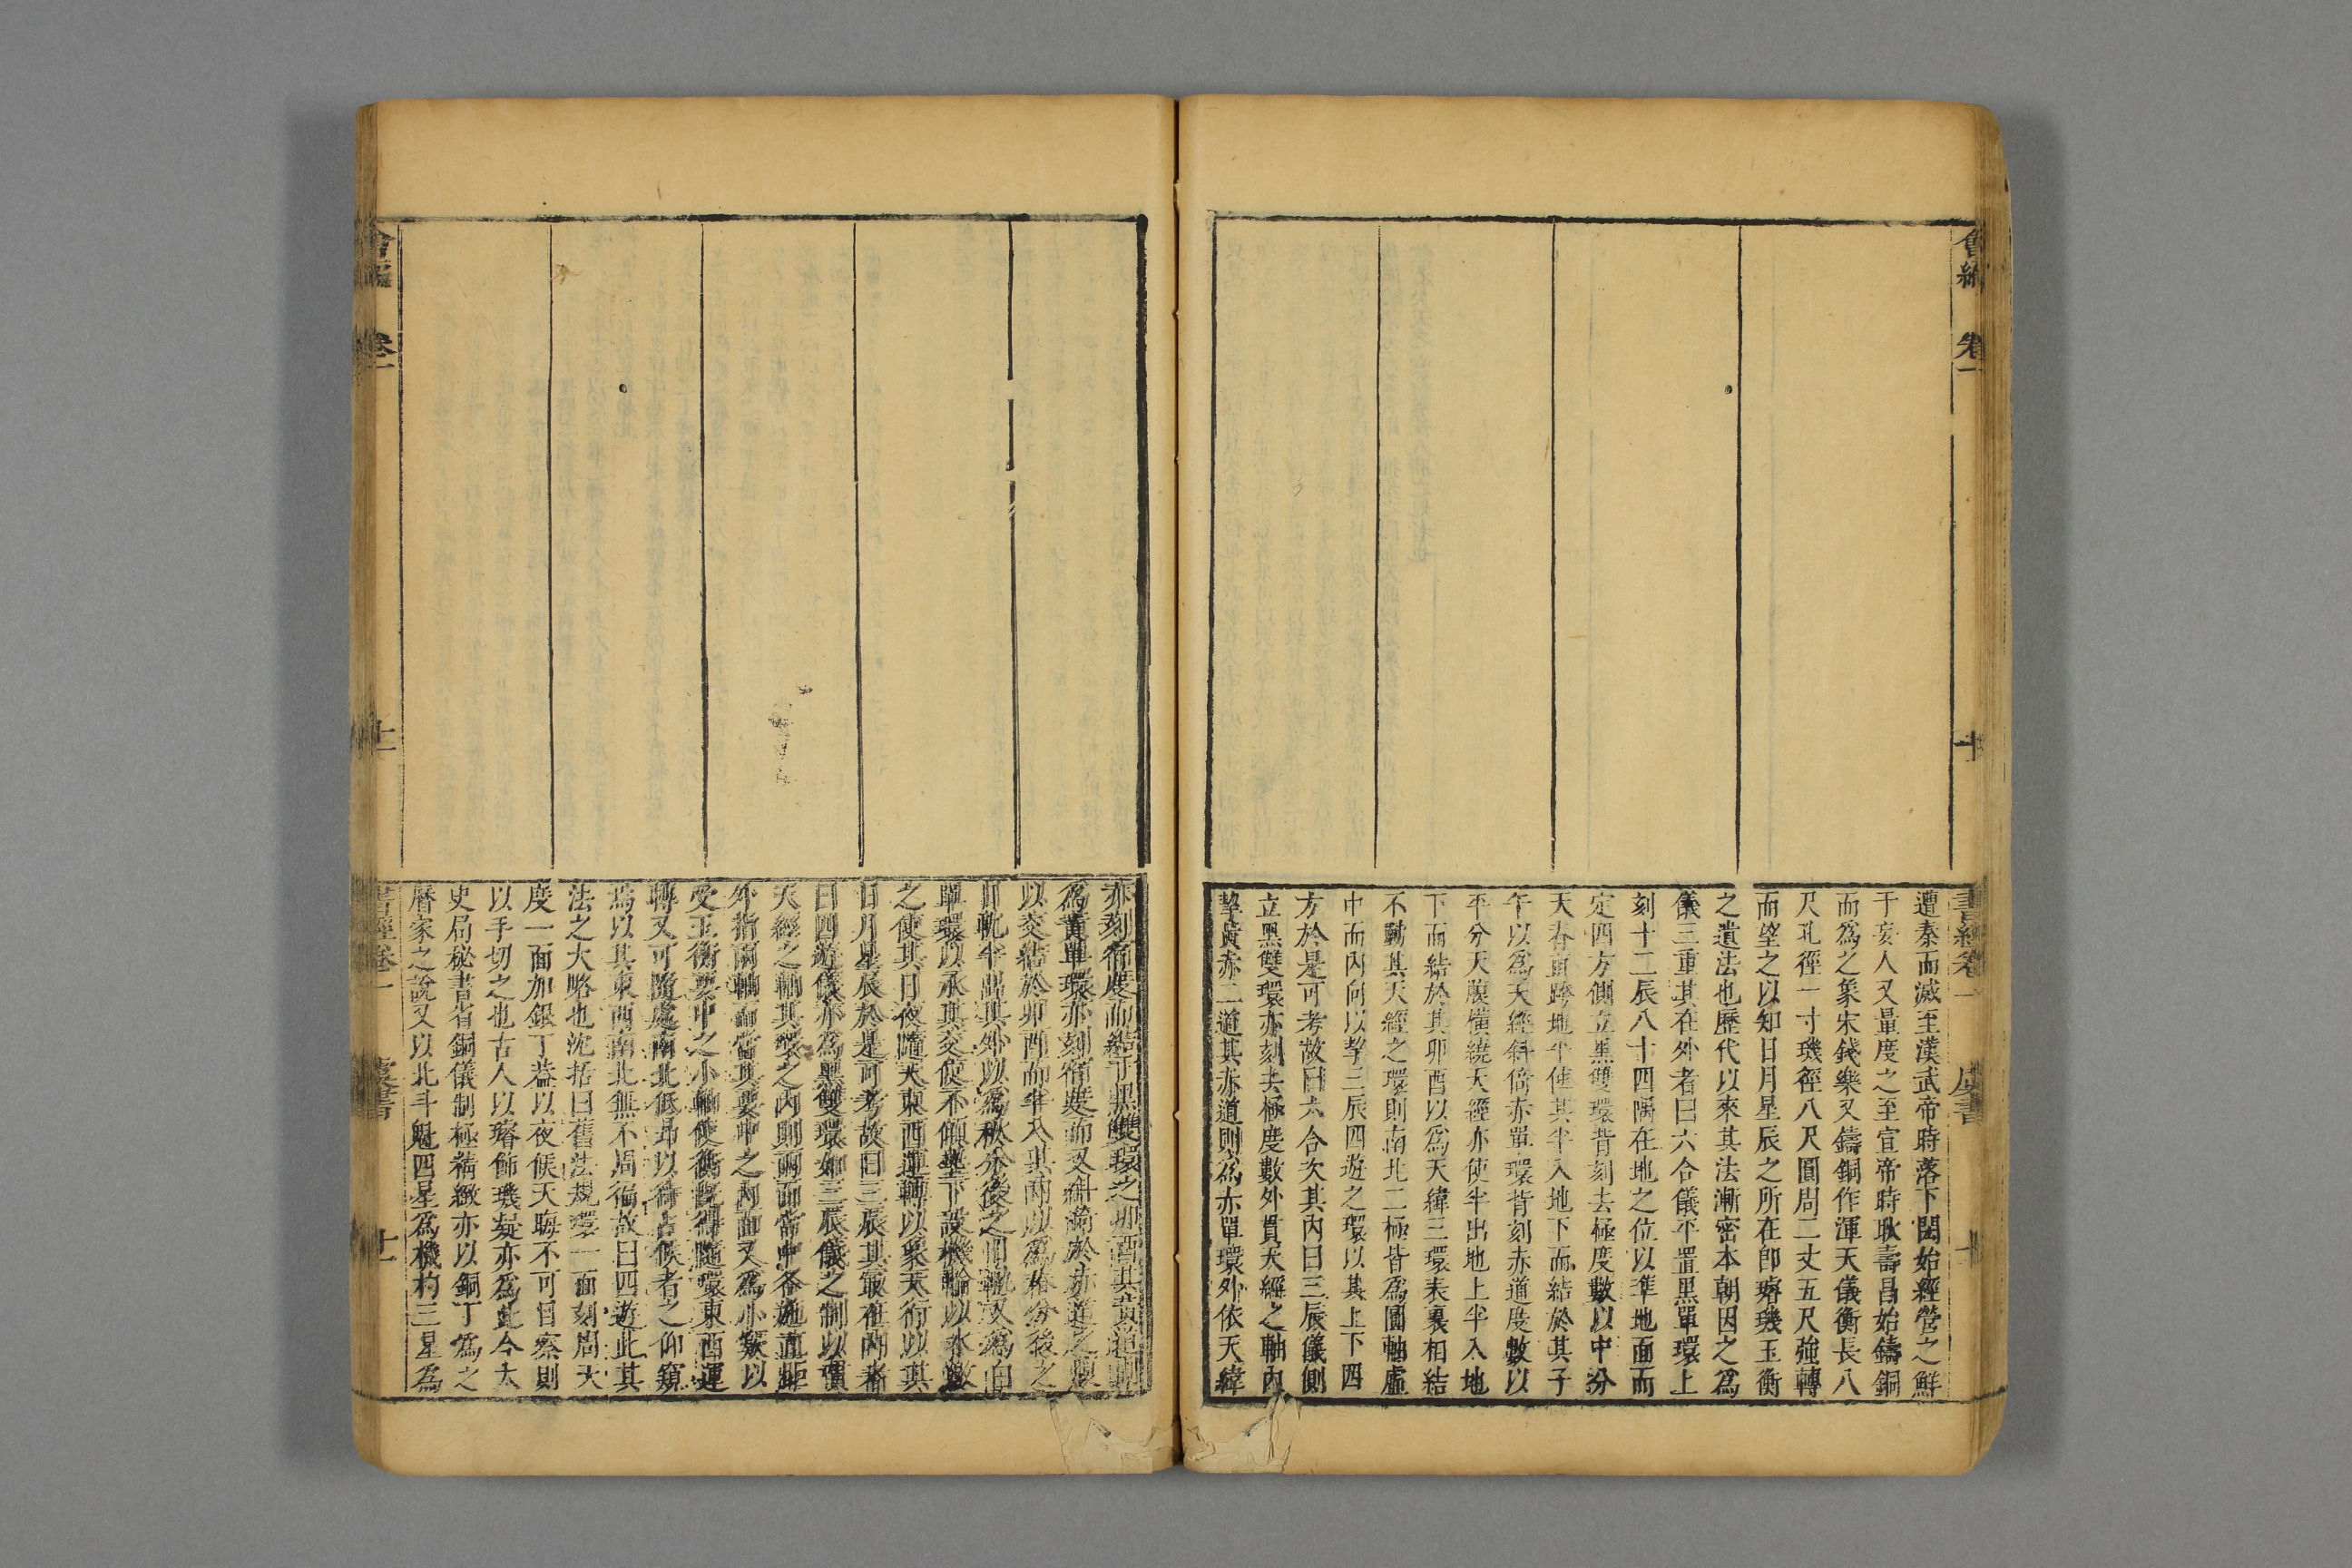 會編 卷一 十
書經卷一 虞書 十
遭秦而滅至漢武帝時落下閎始經營之鮮
于妄人又量度之至宣帝時耿壽昌始鑄銅
而爲之象宋錢樂又鑄銅作渾天儀衡長八
尺孔徑一寸璣徑八尺圓周二丈五尺強轉
而望之以知日月星辰之所在卽璿璣玉衡
之遺法也歷代以來其法漸密本朝因之爲
儀三重其在外者曰六合儀平置黑單環上
刻十二辰八十四隅在地之位以準地面而
定四方側立黑雙環背刻去極度數以中分
天脊直跨地平使其半入地下而結於其子
午以爲天經斜倚赤單環背刻赤道度數以
平分天腹橫繞天經亦使半出地上半入地
下而結於其卯酉以爲天緯三環表裏相結
不動其天經之環則南北二極皆爲圓軸虛
中而內向以挈三辰四遊之環以其上下四
方於是可考故曰六合次其內曰三辰儀側
立黑雙環亦刻去極度數外貫天經之軸內
挈黃赤二道其赤道則爲赤單環外依天緯
亦刻宿度而結于黑雙環之卯酉其黃道則
爲黃單環亦刻宿度而又斜倚於赤道之腹
以交結於卯酉而半入其內以爲春分後之
日軌半出其外以爲秋分後之日軌又爲白
單環以承其交使不傾墊下設機輪以水激
之使其日夜隨天東西運轉以象天行以其
日月星辰於是可考故曰三辰其最在內者
曰四遊儀亦爲黑雙環如三辰儀之制以貫
天經之軸其環之內則兩面當中各施直距
外指兩軸而當其要中之內面又爲小窽以
受玉衡要中之小軸使衡旣得隨環東西運
轉又可隨處南北低昂以待占候者之仰窺
焉以其東西南北無不周徧故曰四遊此其
法之大略也沈括曰舊法規環一面刻周天
度一面加銀丁葢以夜候天晦不可目察則
以手切之也古人以璿飾璣疑亦爲此今太
史局秘書省銅儀制極精緻亦以銅丁爲之
曆家之說又以北斗魁四星爲機杓三星爲
會編 卷一 十一
書經卷一 虞書 十一